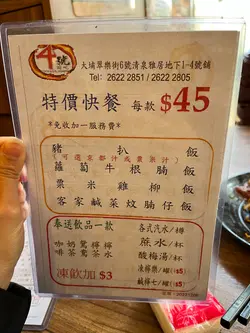 4號
大埔翠樂街6號清泉雅居地下1-4號舖
Tel: 2622 2851 / 2622 2805
特價快餐 每款 $45
*免收加一服務費*
豬扒飯
(可選京都汁或粟米汁)
蘿蔔牛根腩飯
粟米雞柳飯
客家鹹菜炆腩仔飯
奉送飲品一款
咖啡
奶茶
鴛鴦
檸水
檸茶
凍飲加 $3
各式汽水/樽
蔴水/杯
酸梅湯/杯
凍檸樂/罐(+$5)
鹹檸七/罐(+$5)